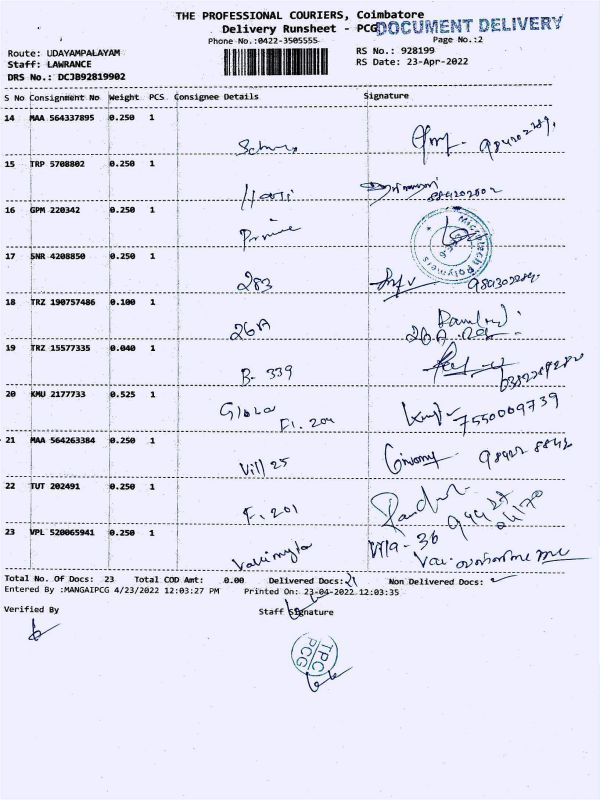 THE PROFESSIONAL COURIERS, Coimbatore
Delivery Runsheet - PCG DOCUMENT DELIVERY
Phone No.:0422-3505555 Page No.:2
Route: UDAYAMPALAYAM RS No.: 928199
Staff: LAWRANCE RS Date: 23-Apr-2022
DRS No.: DCJB92819902
S No Consignment No Weight PCS Consignee Details Signature
14 MAA 564337895 0.250 1
15 TRP 5708802 0.250 1
Hari
16 GPM 220342 0.250 1
Microtech Polymers
17 SNR 4208850 0.250 1
283
18 TRZ 190757486 0.100 1
26A
19 TRZ 15577335 0.040 1
B- 339
20 KMU 2177733 0.525 1
7550009739
F1. 204
21 MAA 564263384 0.250 1
Vill 25
22 TUT 202491 0.250 1
F. 201
23 VPL 520065941 0.250 1
Villa - 36
Total No. Of Docs: 23 Total COD Amt: 0.00 Delivered Docs: 21 Non Delivered Docs: 2
Entered By :MANGAIPCG 4/23/2022 12:03:27 PM Printed On: 23-04-2022 12:03:35
Verified By Staff Signature
TPC
PCG